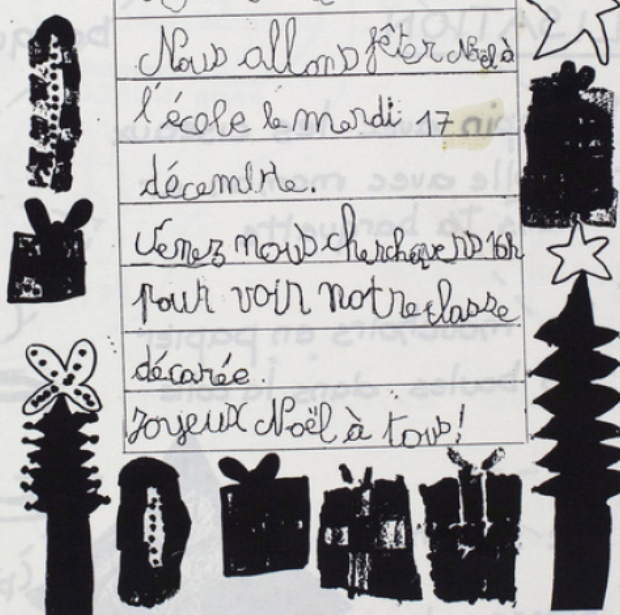 Nous allons fêter Noël à
l'école le mardi 17
décembre.
Venez nous chercher vers 16h
pour voir notre classe
décorée.
Joyeux Noël à tous!